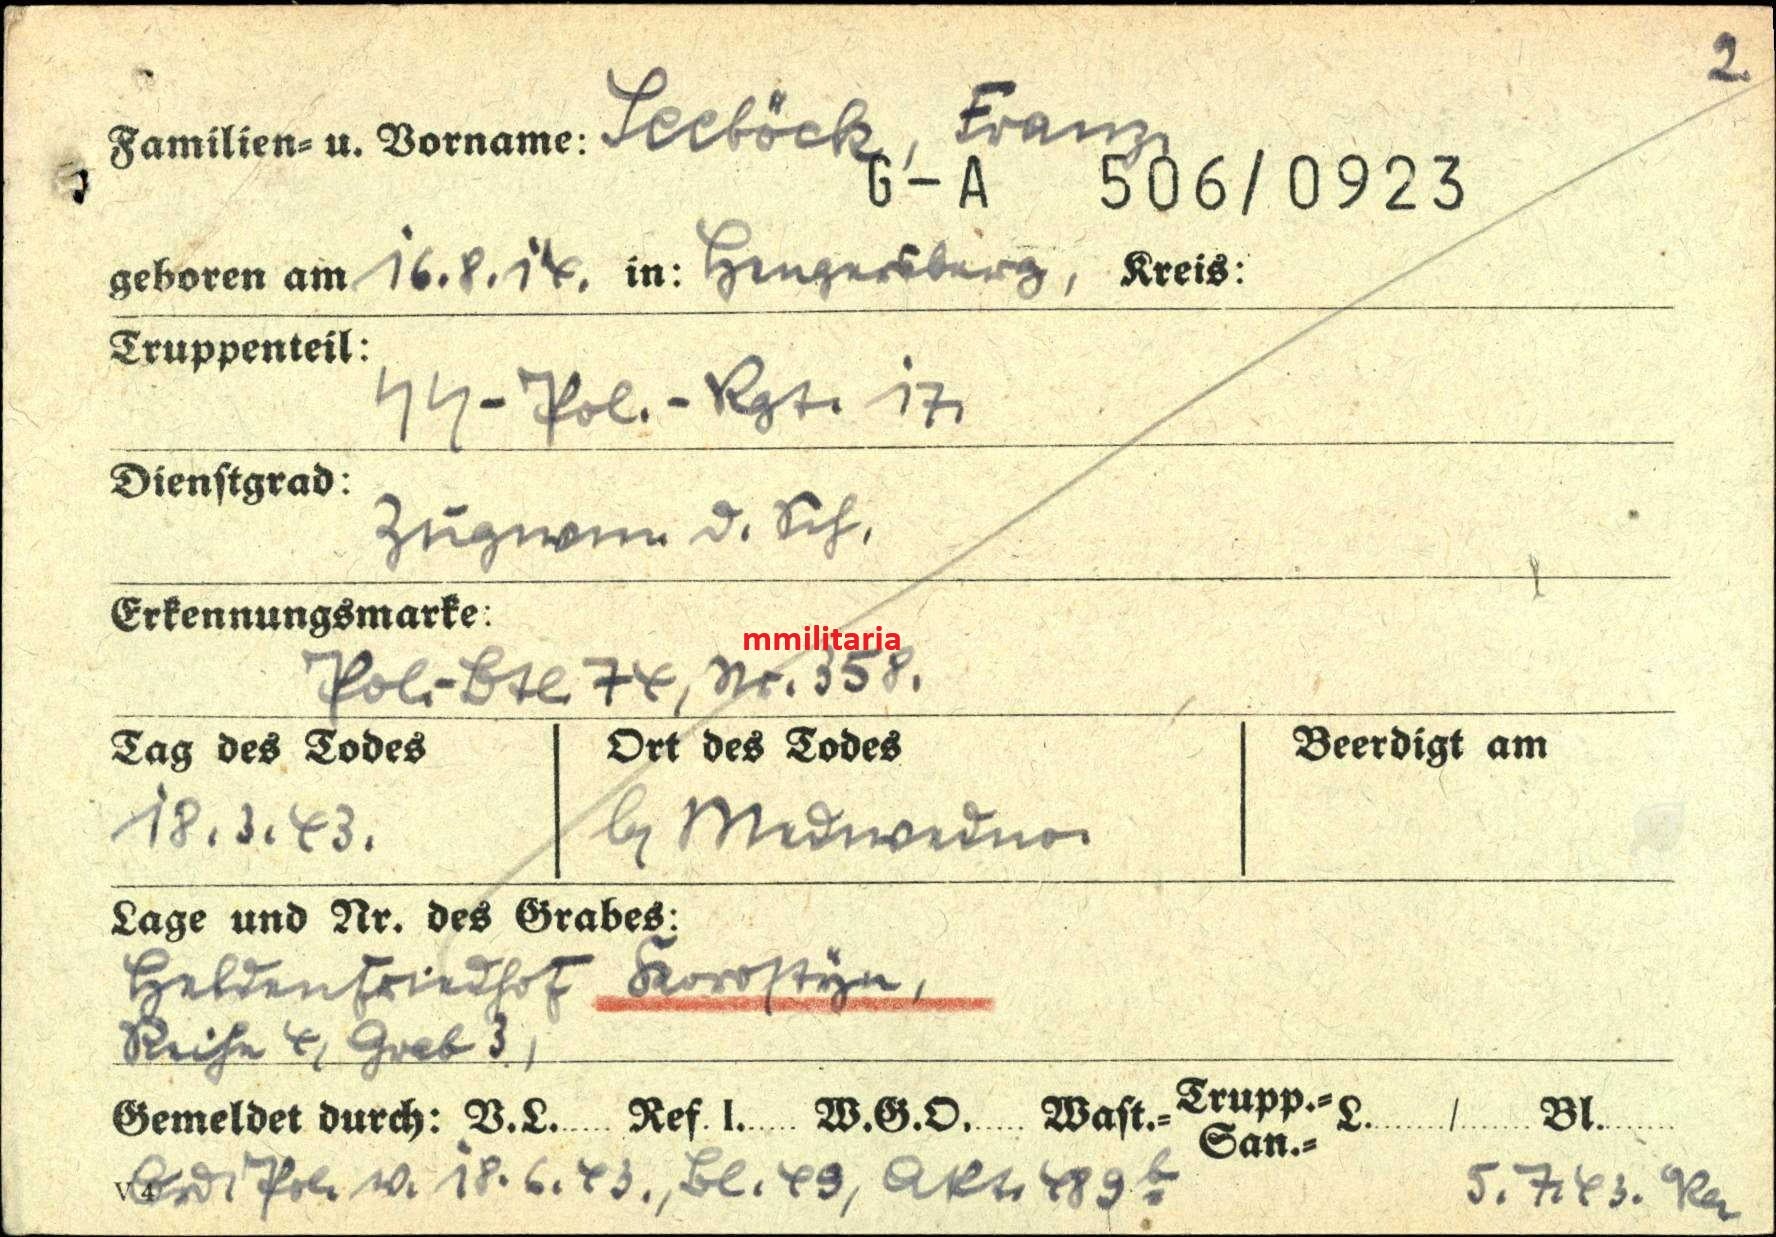 2.
Familien- u. Vorname: Seeböck, Franz
G-A 506/0923
geboren am 16.8.14. in: Hengersberg, Kreis:
Truppenteil:
SS-Pol.-Rgt. 17.
Dienstgrad:
Zugwm. d. Sch.
Erkennungsmarke:
mmilitaria
Pol.-Btl. 74, Nr. 358.
Tag des Todes Ort des Todes Beerdigt am
18.3.43. Medwedno.
Lage und Nr. des Grabes:
Heldenfriedhof Korostyn,
Reihe 4, Grab 3,
Gemeldet durch: V.L..... Ref. I..... W.G.O..... Wast.- Trupp.- San.- L......../....... Bl........
V 4 Ord. Pol. v. 18.6.43., Bl. 49, Akt. 489 b 5.7.43.